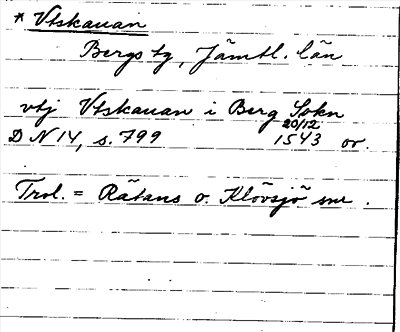 * Vtskauan
Bergs tg, Jämtl. län
vtj Vtskauan i Berg Sokn
20/12
DN 14, s. 799 1543 or.
Trol. = Rätans o. Klövsjö snr.